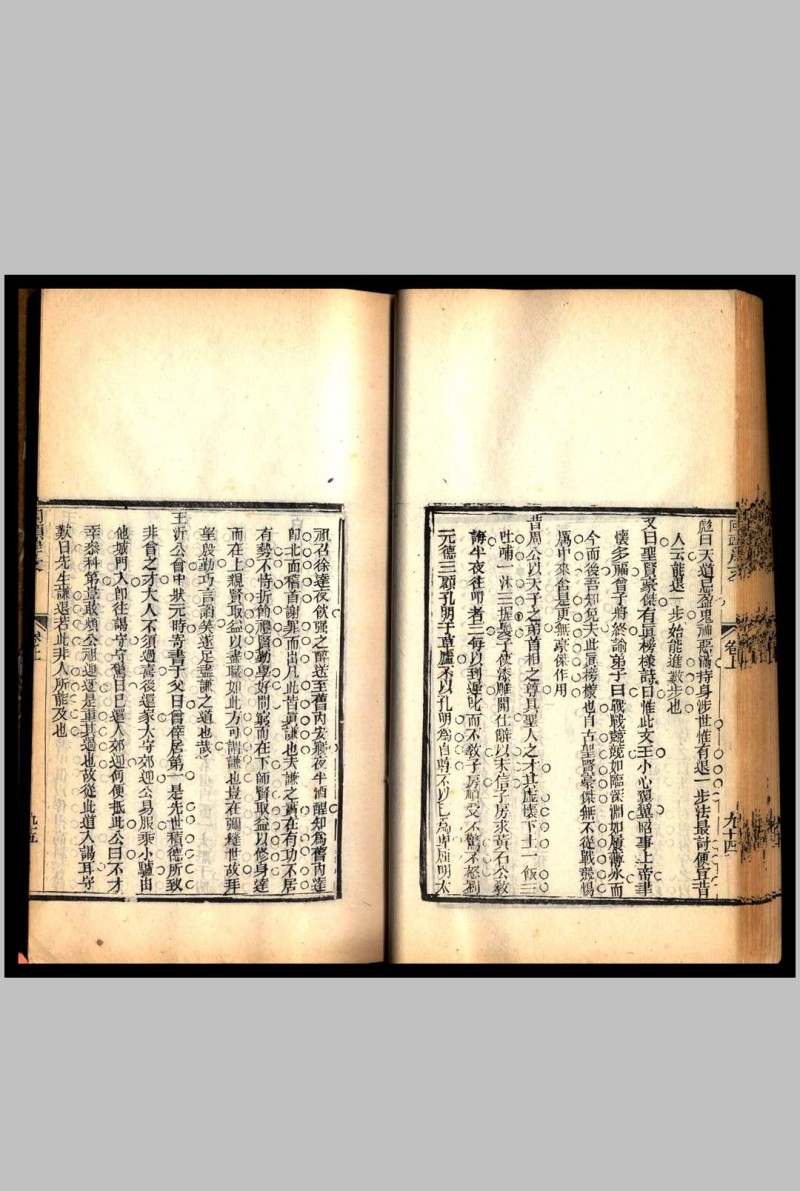 彪曰天道忌盈鬼神惡滿持身涉世惟有退一步法最討便宜昔
人云能退一步始能進數步也
又曰聖賢豪傑有真榜樣詩曰惟此文王小心翼翼昭事上帝聿
懷多福曾子將終諭弟子曰戰戰兢兢如臨深淵如履薄冰而
今而後吾知免夫此真榜樣也自古聖賢豪傑無不從戰兢惕
厲中來舍是更無豪傑作用
昔周公以天子之弟首相之尊具聖人之才其虛懷下士一飯三
吐哺一沐三握髮子使漆雕開仕辭以未信子房求黃石公教
誨半夜往
者三每以到遲叱而不教子房順受不驚不怒劉
元德三顧孔明于草廬不以孔明為自尊不以己為卑屈明太
卷上
九十四
祖召徐達夜飲強之醉送至舊內安寢夜半酒醒知為舊內達
即北面稽首謝罪而出凡此皆真謙也夫謙之實在有功不居
有勢不恃折節禮賢勤學好問窮而在下師賢取益以修身達
而在上親賢取益以盡職如此方可謂謙也豈在彌縫世故拜
跪殷勤巧言諂笑遂足盡謙之道也哉
王沂公曾中狀元時寄書于父曰曾倖居第一是先世積德所致
非曾之才大人不須過喜後還家太守郊迎公易服乘小驢由
他城門入即往謁守守驚曰已遣人郊迎何便抵此公曰不才
幸忝科第豈敢煩公祖迎迓是重其過也故從此道入謁耳守
歎曰先生謙退若此非人所能及也
卷上
九十五